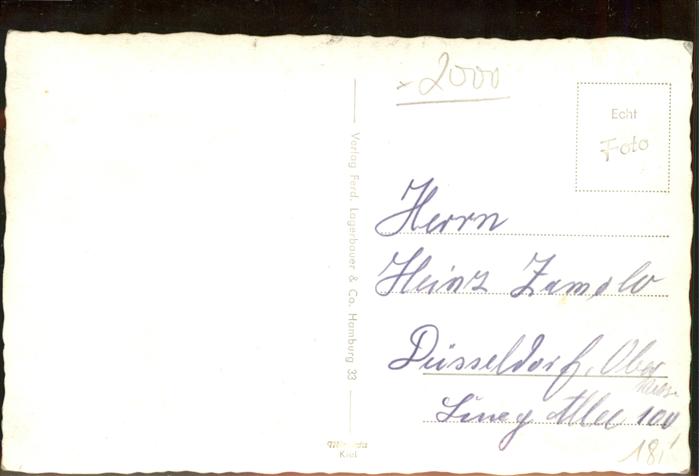 2000
Echt
Foto
Verlag Ferd. Lagerbauer & Co. Hamburg 33
Herrn
Heinz Zamolo
Düsseldorf, Ober
Allee 100
Kiel
18,